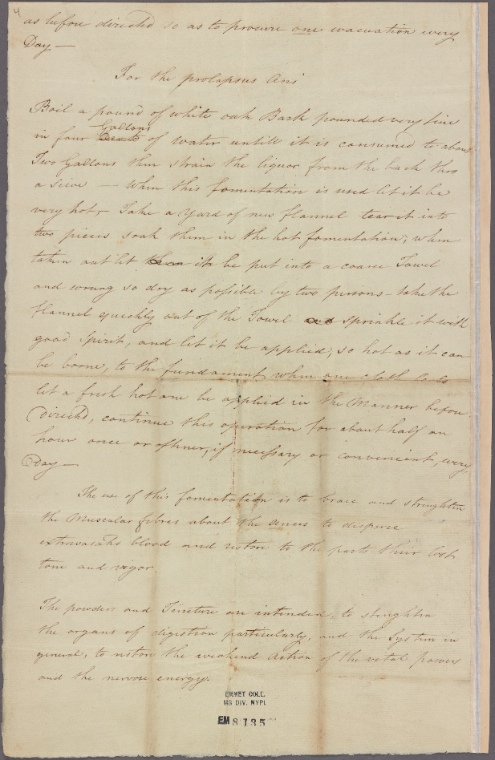 4
as before directed so as to procure one evacuation every
Day —
For the prolapsus Ani
Boil a pound of white oak Bark pounded very fine
in four Gallons of water untill it is consumed to about
Two Gallons then strain the liquor from the bark thro
a sieve — When this fomentation is used let it be
very hot, Take a Yard of new flannel tear it into
two pieces soak them in the hot fomentation; when
taken out let it be put into a coarse Towel
and wrung so dry as possible by two persons — take the
flannel quickly out of the Towel sprinkle it with
good Spirit, and let it be applied, so hot as it can
be borne, to the fundament, when one cloth cools
let a fresh hot one be applied in the Manner before
Directed, continue this operation for about half an
hour once or oftner, if necessary or convenient, every
Day —
The use of this fomentation is to brace and strenghten
the Muscular fibres about the anus to disperse
extravasated blood and restore to the parts their lost
tone and vigor
The powders and Tincture are intended to strenghten
the organs of digestion particularly, and the System in
general, to restore the weakend action of the vital powers
and the nervous energy.
EMMET COLL.
MS DIV. NYPL
EM 8735